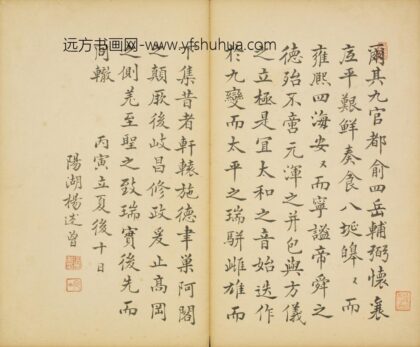 远方书画网-www.yfshuhua.com
爾其九官都俞四岳輔弼懷襄
底平艱鮮奏食八埏皞々而
雍熙四海安々而寧謐帝舜之
德殆不啻元渾之并包與方儀
之立極是宜太和之音始迭作
於九變而太平之瑞駢雌雄而
來集昔者軒轅施德聿巢阿閣
之顛厥後岐昌修政爰止高岡
之側羌至聖之致瑞實後先而
同轍
丙寅立夏後十日
陽湖楊述曾